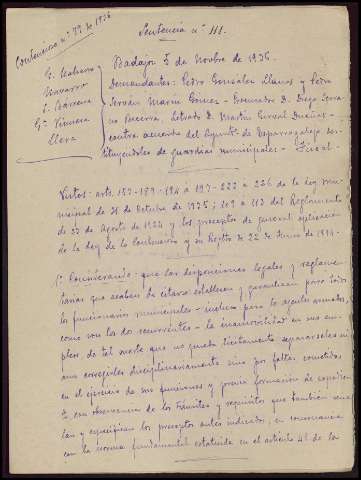 Contencioso nº 77 de 1936
Sentencia nº 111.
Badajoz 5 de Novbre de 1936.
Navarro
G. Barrera
Gª Viniera
Llera
Demandantes: Pedro González Llanos y Pedro
Servan Marin Gómez - Procurador D. Diego Serra
no Becerra, Letrado D. Martín Corral Dueñas -
contra acuerdo del Ayunt. de Esparragalejo des-
tituyéndoles de guardias municipales - Fiscal.
Vistos: arts. 157-189-194 a 197-223 a 226 de la ley mu-
nicipal de 31 de Octubre de 1935; 109 a 113 del Reglamento
de 23 de Agosto de 1924 y los preceptos de general aplicación
de la Ley de lo Contencioso y su Regto de 22 de Junio de 1894.
1º Considerando: que las disposiciones legales y reglamen-
tarias que acaban de citarse establecen y garantizan para todos
los funcionarios municipales - incluso para los agentes armados,
como son los dos recurrentes - la inamovilidad en sus em-
pleos de tal suerte que no pueda lícitamente separárseles ni
aun corregirles disciplinariamente sino por faltas cometidas
en el ejercicio de sus funciones y previa formación de expedien-
te, con observancia de los trámites y requisitos que también seña-
lan y especifican los preceptos antes indicados, en concordancia
con la norma fundamental estatuida en el artículo 41 de la